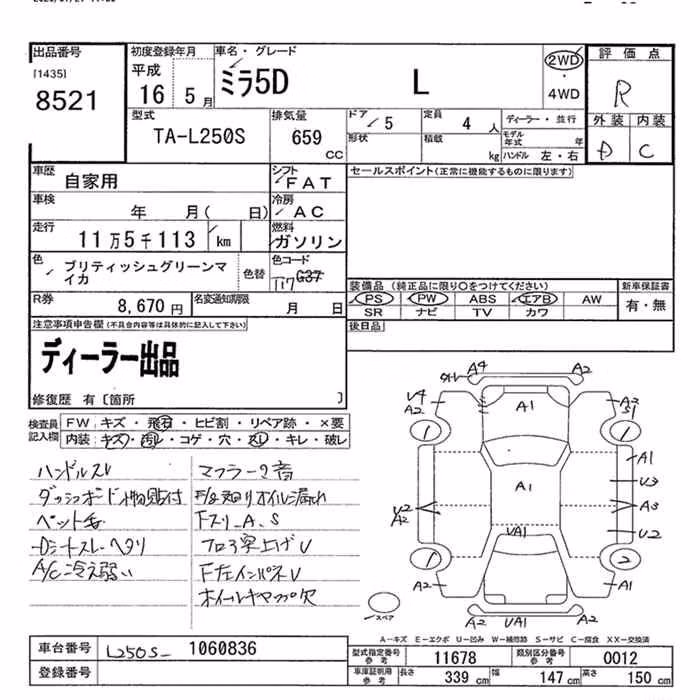 出品番号
[1435]
8521
初度登録年月
平成
16 5月
車名・グレード
ミラ5D L
2WD
・
4WD
評価点
R
外装 内装
D C
型式
TA-L250S
排気量
659 cc
ドア 5
形状
定員 4 人
積載 kg
ディーラー・並行
モデル年式 年
ハンドル 左・右
車歴
自家用
シフト
FAT
セールスポイント(正常に機能するものに限ります)
車検
年 月( 日)
冷房
AC
走行
11万5千113 km
燃料
ガソリン
色
ブリティッシュグリーンマイカ
色替
色コード
T17 G37
装備品 (純正品に限り○をつけてください)
PS PW ABS エアB AW
SR ナビ TV カワ
新車保証書
有・無
R券
8,670 円
名変通知期限
月 日
後日品
注意事項申告欄(不具合内容等は具体的に記入して下さい)
ディーラー出品
修復歴 有〔箇所 〕
検査員記入欄
FW:キズ・飛石・ヒビ割・リペア跡・×要
内装:キズ・汚れ・コゲ・穴・スレ・キレ・破レ
ハンドルスレ
ダッシュボード小物貼付
ペット毛
Dシートスレ・ヘタリ
A/C冷え弱い
マフラー2音
下廻りオイル漏れ
Fスリ_A_S
フロア突上げU
F左インパネU
ホイールキャップ欠
A4 A2
U4
A2
A1
A2
S1
1 1
A1
U3
A1
U2
A2
A3
U2
UA1
1 2
A2 A1
A2 UA1 A2
スペア
A−キズ E−エクボ U−凹み W−補修跡 S−サビ C−腐食 XX−交換済
車台番号
L250S- 1060836
登録番号
型式指定番号
参考
11678
類別区分番号
参考
0012
車庫証明用
参考
長さ 339 cm 幅 147 cm 高さ 150 cm